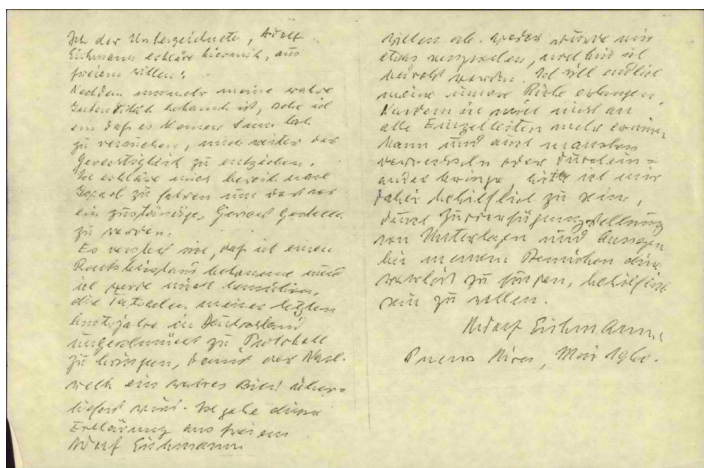 Ich der Unterzeichnete, Adolf
Eichmann erkläre hiermit, aus
freiem Willen:
Nachdem nunmehr meine wahre
Identität bekannt ist, sehe ich
ein daß es keinen Sinn hat
zu versuchen, mich weiter der
Gerechtigkeit zu entziehen.
Ich erkläre mich bereit nach
Israel zu fahren um dort vor
ein zuständiges Gericht gestellt
zu werden.
Es versteht sich, daß ich einen
Rechtsbeistand bekomme und
ich werde mich bemühen,
die Tatsachen meiner letzten
Amtsjahre in Deutschland
ungeschminkt zu Protokoll
zu bringen, damit der Nach-
welt ein wahres Bild über-
liefert wird. Ich gebe diese
Erklärung aus freiem
Adolf Eichmann
Willen ab. Weder wurde mir
etwas versprochen, noch bin ich
bedroht worden. Ich will endlich
meine innere Ruhe erlangen.
Nachdem ich mich nicht an
alle Einzelheiten mehr erinnern
kann und auch manches
verwechseln oder durchein=
ander bringe, bitte ich mir
dabei behilflich zu sein,
durch Zurverfügungstellung
von Unterlagen und Aussagen
bei meinem Bemühen die
Wahrheit zu suchen, behilflich
sein zu wollen.
Adolf Eichmann,
Buenos Aires, Mai 1960.